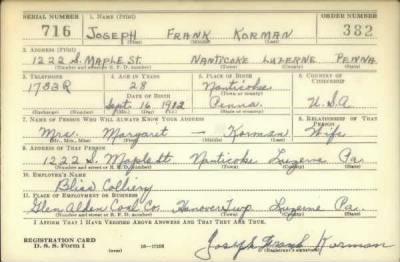 SERIAL NUMBER 1. NAME (Print) ORDER NUMBER
716 JOSEPH FRANK KORMAN 382
(First) (Middle) (Last)
2. ADDRESS (Print)
1222 S. MAPLE ST. NANTICOKE LUZERNE PENNA
(Number and street or R. F. D. number) (Town) (County) (State)
3. TELEPHONE 4. AGE IN YEARS 5. PLACE OF BIRTH 6. COUNTRY OF CITIZENSHIP
1782R 28 Nanticoke
DATE OF BIRTH (Town or county)
Sept. 16 1912 Penna. U.S.A
(Mo.) (Day) (Yr.) (State or country)
7. NAME OF PERSON WHO WILL ALWAYS KNOW YOUR ADDRESS 8. RELATIONSHIP OF THAT PERSON
Mrs. Margaret — Korman Wife
(Mr., Mrs., Miss) (First) (Middle) (Last)
9. ADDRESS OF THAT PERSON
1222 S. Maple St. Nanticoke Luzerne Pa.
(Number and street or R. F. D. number) (Town) (County) (State)
10. EMPLOYER'S NAME
Bliss Colliery
11. PLACE OF EMPLOYMENT OR BUSINESS
Glen Alden Coal Co. Hanover Twp Luzerne Pa.
(Number and street or R. F. D. number) (Town) (County) (State)
I AFFIRM THAT I HAVE VERIFIED ABOVE ANSWERS AND THAT THEY ARE TRUE.
REGISTRATION CARD
D. S. S. Form 1 (over) 16—17105 Joseph Frank Korman
(Registrant's signature)